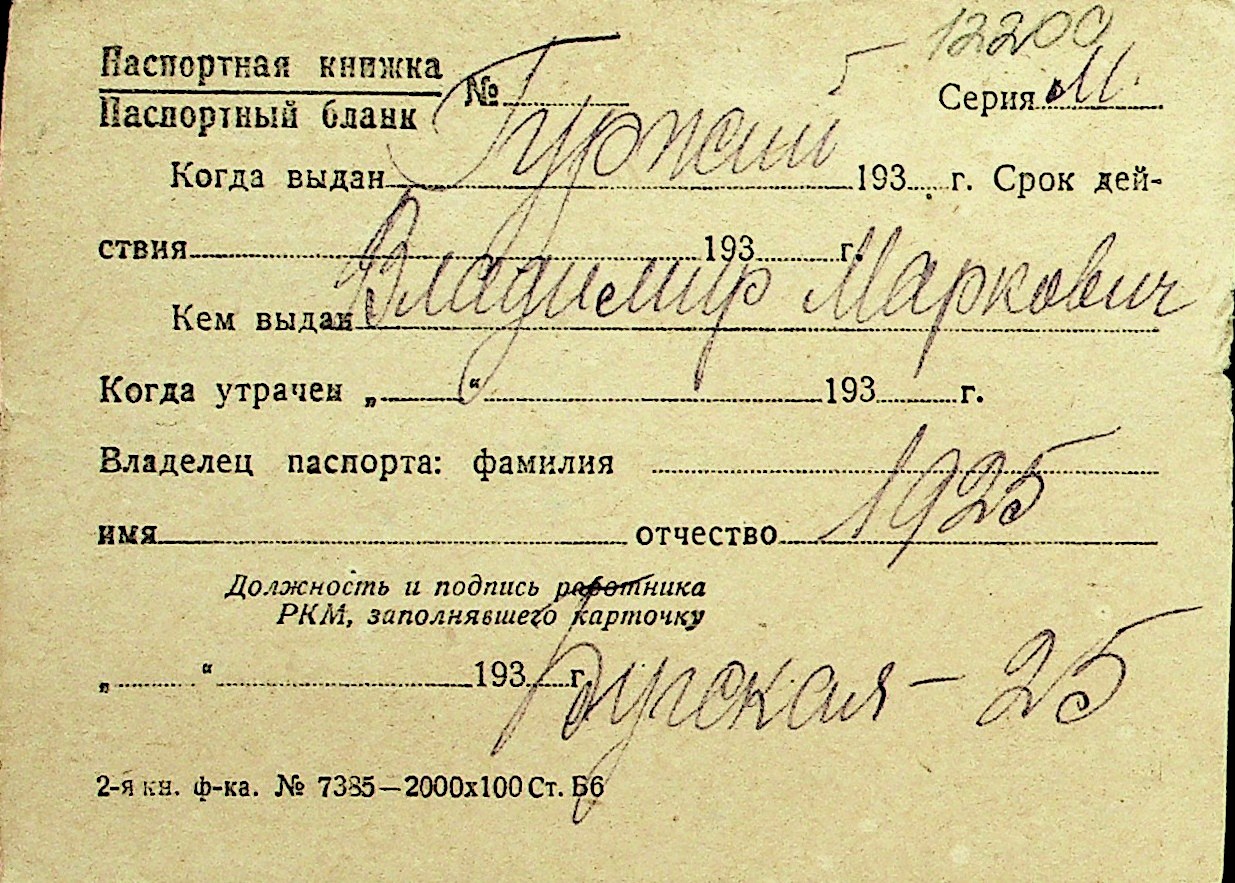 12200
Паспортная книжка
Паспортный бланк
№ Серия М.
Гуржий
Когда выдан 193 г. Срок дей-
ствия 193 г.
Владимир Маркович
Кем выдан
Когда утрачен „ “ 193 г.
Владелец паспорта: фамилия
1925
имя отчество
Должность и подпись работника
РКМ, заполнявшего карточку
„ “ 193 г.
Бугская – 25
2-я кн. ф-ка. № 7385—2000х100 Ст. Б6